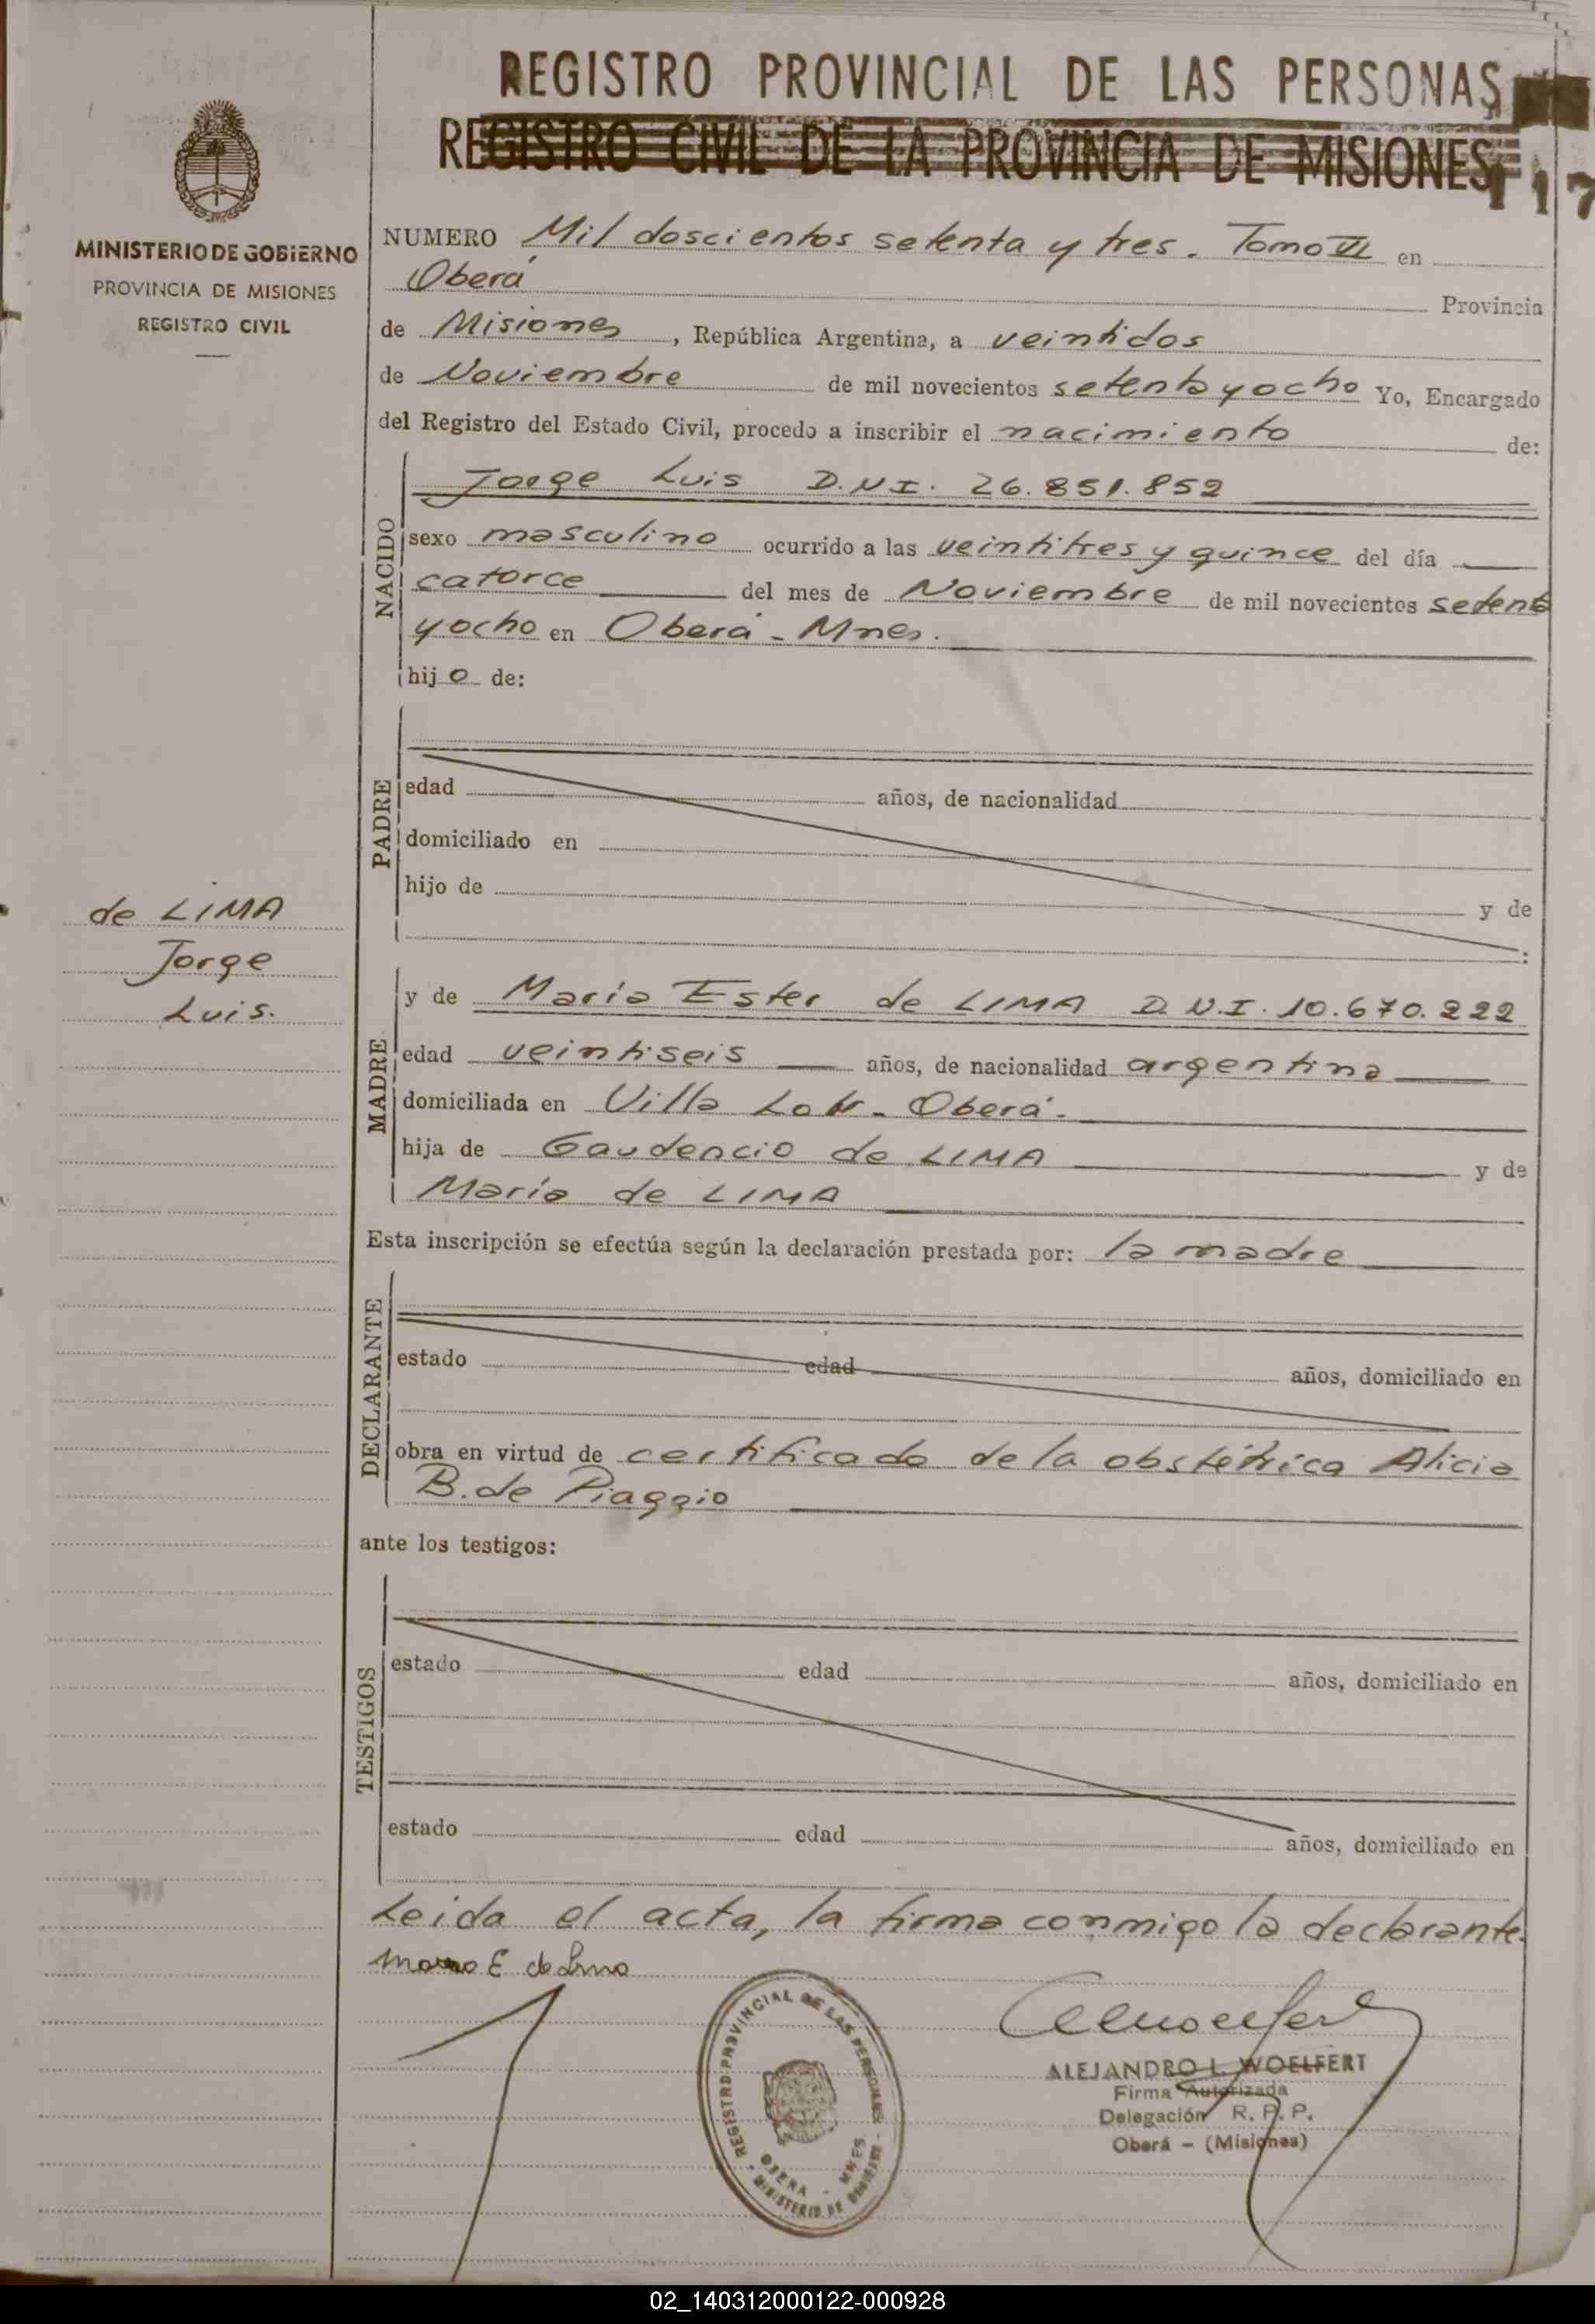 REGISTRO PROVINCIAL DE LAS PERSONAS
REGISTRO CIVIL DE LA PROVINCIA DE MISIONES
117
MINISTERIO DE GOBIERNO
PROVINCIA DE MISIONES
REGISTRO CIVIL
NUMERO Mil doscientos setenta y tres. Tomo VI en
Oberá Provincia
de Misiones, República Argentina, a veintidos
de Noviembre de mil novecientos setenta y ocho Yo, Encargado
del Registro del Estado Civil, procedo a inscribir el nacimiento de:
NACIDO
Jorge Luis D.N.I. 26.851.852
sexo masculino ocurrido a las veintitres y quince del día
catorce del mes de Noviembre de mil novecientos setenta
y ocho en Oberá - Mnes.
hijo de:
PADRE
edad años, de nacionalidad
domiciliado en
hijo de y de
:
de LIMA
Jorge
Luis.
MADRE
y de María Ester de LIMA D.N.I. 10.670.222
edad veintiseis años, de nacionalidad argentina
domiciliada en Villa - Oberá.
hija de Gaudencio de LIMA y de
María de LIMA
Esta inscripción se efectúa según la declaración prestada por: la madre
DECLARANTE
estado edad años, domiciliado en
obra en virtud de certificado de la obstétrica Alicia
B. de Piaggio
ante los testigos:
TESTIGOS
estado edad años, domiciliado en
estado edad años, domiciliado en
Leida el acta, la firma conmigo la declarante.
E de Lima
REGISTRO PROVINCIAL DE LAS PERSONAS
OBERA - MNES
MINISTERIO DE GOBIERNO
ALEJANDRO L. WOELFERT
Firma Autorizada
Delegación R. P. P.
Oberá - (Misiones)
02_140312000122-000928